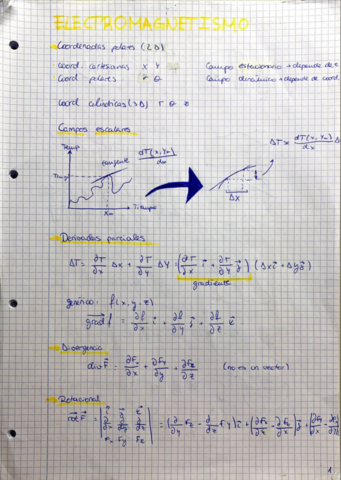 ELECTROMAGNETISMO
Coordenadas polares (2D)
Coord. cartesianas x y
Campo estacionario → depende de
Coord. polares r θ
Campo dinámico → depende de coord.
Coord. cilíndricas (3D) r θ z
Campos escalares
Temp
tangente
dT(x, ym)/dx
Tm
xm
Tiempo
ΔT ≈ dT(x, ym)/dx Δ
Δx
Derivadas parciales
ΔT = ∂T/∂x Δx + ∂T/∂y Δy = (∂T/∂x i + ∂T/∂y j) (Δx i + Δy j)
gradiente
genérico: f(x, y, z)
grad f = ∂f/∂x i + ∂f/∂y j + ∂f/∂z k
Divergencia
div F = ∂Fx/∂x + ∂Fy/∂y + ∂Fz/∂z (no es un vector)
Rotacional
rot F = | i j k
∂/∂x ∂/∂y ∂/∂z
Fx Fy Fz | = (∂/∂y Fz - ∂/∂z Fy) i + (∂Fx/∂z - ∂Fz/∂x) j + (∂Fy/∂x - ∂Fx/∂y)
1